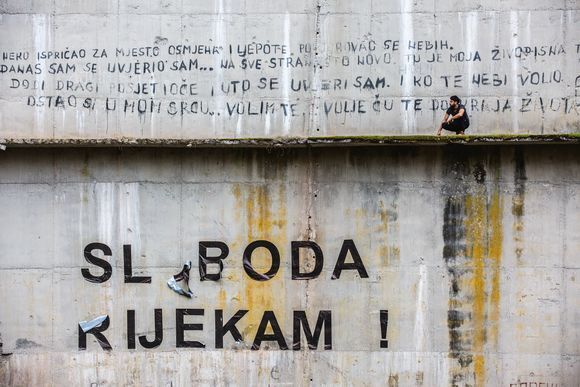 NEKO ISPRIČAO ZA MJESTO OSMJEHA I LJEPOTE. SE NEBIH.
DANAS SAM SE UVJERIO SAM... NA SVE NOVO. TU JE MOJA ŽIVOPISNA
DOĐI DRAGI POSJETIOČE I UTO SE UVJERI SAM. I KO TE NEBI VOLIO
OSTAO SI U MOM SRCU... VOLIM TE, TE DO KRAJA ŽIVOTA
SL BODA
RIJEKAM !